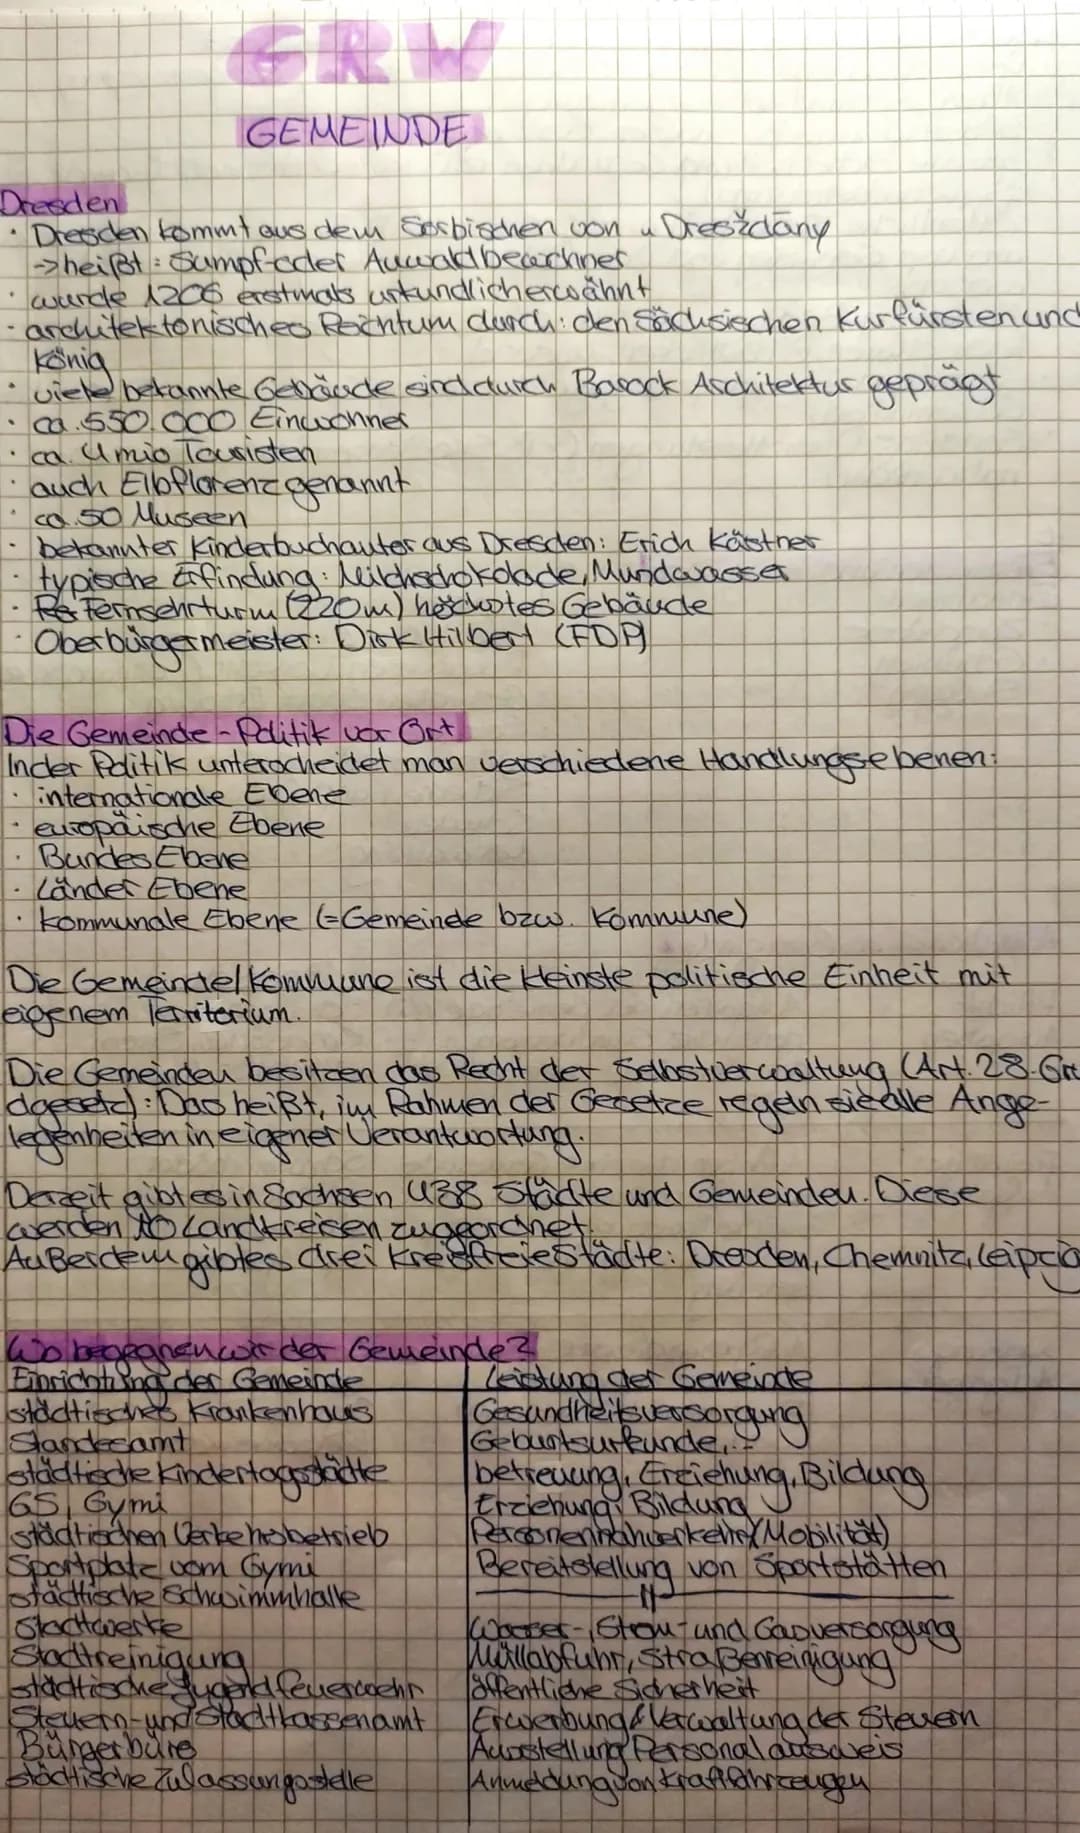 GRW
GEMEINDE
Dresden
· Dresden kommt aus dem Sorbischen von "Dresždany
-> heißt: Sumpf- oder Auwaldbewohner
· wurde 1206 erstmals urkundlich erwähnt
· architektonisches Reichtum durch: den Sächsischen Kurfürsten und
König
· viele bekannte Gebäude sind durch Barock Architektur geprägt
· ca. 550.000 Einwohner
· ca. 4 mio Touristen
· auch Elbflorenz genannt
· ca. 50 Museen
· bekannter Kinderbuchautor aus Dresden: Erich Kästner
· typische Erfindung: Milchschokolade, Mundwasser
· Fernsehrturm (220m) höchstes Gebäude
· Oberbürgermeister: Dirk Hilbert (FDP)
Die Gemeinde - Politik vor Ort
In der Politik unterscheidet man verschiedene Handlungsebenen:
· internationale Ebene
· europäische Ebene
· Bundes Ebene
· Länder Ebene
· kommunale Ebene (=Gemeinde bzw. Kommune)
Die Gemeinde/Kommune ist die kleinste politische Einheit mit
eigenem Territorium.
Die Gemeinden besitzen das Recht der Selbstverwaltung (Art. 28. Gr
dgesetz): Das heißt, im Rahmen der Gesetze regeln sie alle Ange-
legenheiten in eigener Verantwortung.
Derzeit gibt es in Sachsen 438 Städte und Gemeinden. Diese
werden 10 Landkreisen zugeordnet.
Außerdem gibt es drei kreisfreie Städte: Dresden, Chemnitz, Leipzig
Wo begegnen wir der Gemeinde?
Einrichtung der Gemeinde | Leistung der Gemeinde
städtisches Krankenhaus | Gesundheitsversorgung
Standesamt | Geburtsurkunde, ..
städtische Kindertagsstädte | betreuung, Erziehung, Bildung
GS, Gymi | Erziehung, Bildung
städtischen Verkehrsbetrieb | Personennahverkehr (Mobilität)
Sportplatz vom Gymi | Bereitstellung von Sportstätten
städtische Schwimmhalle | —"—
Stadtwerke | Wasser-, Strom- und Gasversorgung
Stadtreinigung | Müllabfuhr, Straßenreinigung
städtische Jugendfeuerwehr | öffentliche Sicherheit
Steuern- und Stadtkassenamt | Erwerbung & Verwaltung der Steuern
Bürgerbüro | Ausstellung Personalausweis
städtische Zulassungsstelle | Anmeldung von Kraftfahrzeugen